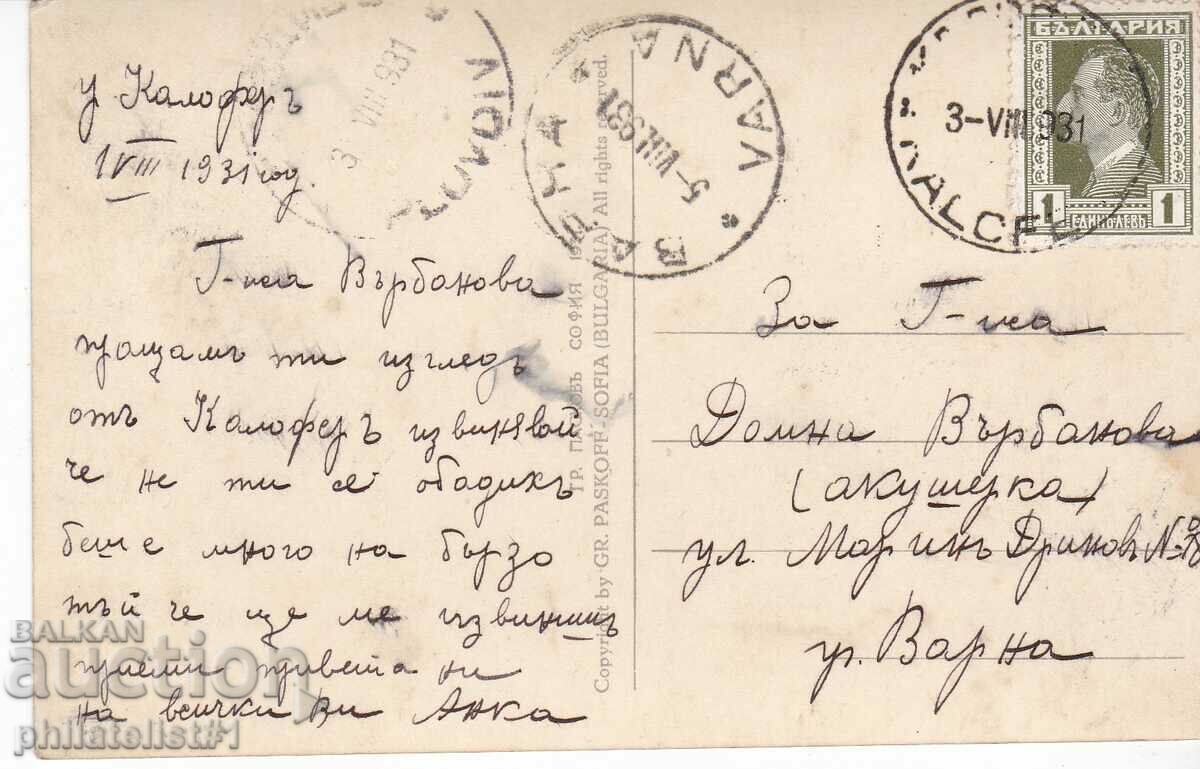 гр Калоферъ
1 VIII 1931 год.
Г-жа Върбанова
пращамъ ти изгледъ
отъ Калоферъ извинявай
че не ти се обадихъ
беше много на бързо
тъй че ще ме извинишъ
приеми привета ни
на всички ви Анка
3 VIII 931
* ВАРНА *
5-VIII 931
VARNA
3-VIII 931
KALOFER
БЪЛГАРИЯ
1 ЕДИНЪ ЛЕВЪ 1
ГР. ПАСКОВЪ СОФИЯ
Copyright by GR. PASKOFF-SOFIA (BULGARIA) All rights reserved.
За Г-жа
Домна Върбанова
(акушерка)
ул. Маринъ Дриновъ №
гр. Варна
BALKAN
auction
philatelist#1